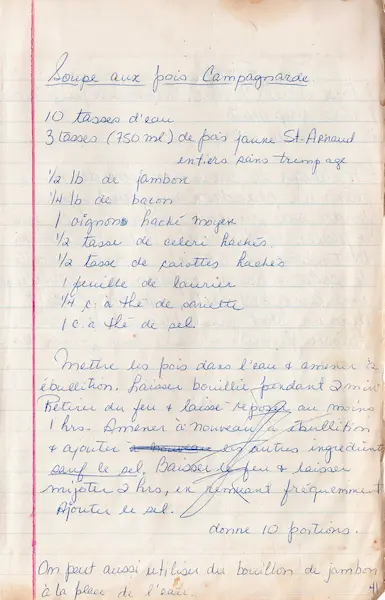 Soupe aux pois Campagnarde
10 tasses d'eau
3 tasses (750 ml) de pois jaune St-Arnaud
entiers sans trempage
1/2 lb de jambon
1/4 lb de bacon
1 oignon haché moyen
1/2 tasse de celeri hachés
1/2 tasse de carottes hachés
1 feuille de laurier
1/4 c. à thé de sariette
1 c. à thé de sel
Mettre les pois dans l'eau & amener à
ébullition. Laisser bouillir pendant 2 min
Retirer du feu & laissé reposer au moins
1 hrs. Amener à nouveau à ébullition
& ajouter les autres ingrédients
sauf le sel. Baisser le feu & laisser
mijoter 2 hrs, en remuant fréquemment
Ajouter le sel.
donne 10 portions.
On peut aussi utiliser du bouillon de jambon
à la place de l'eau.